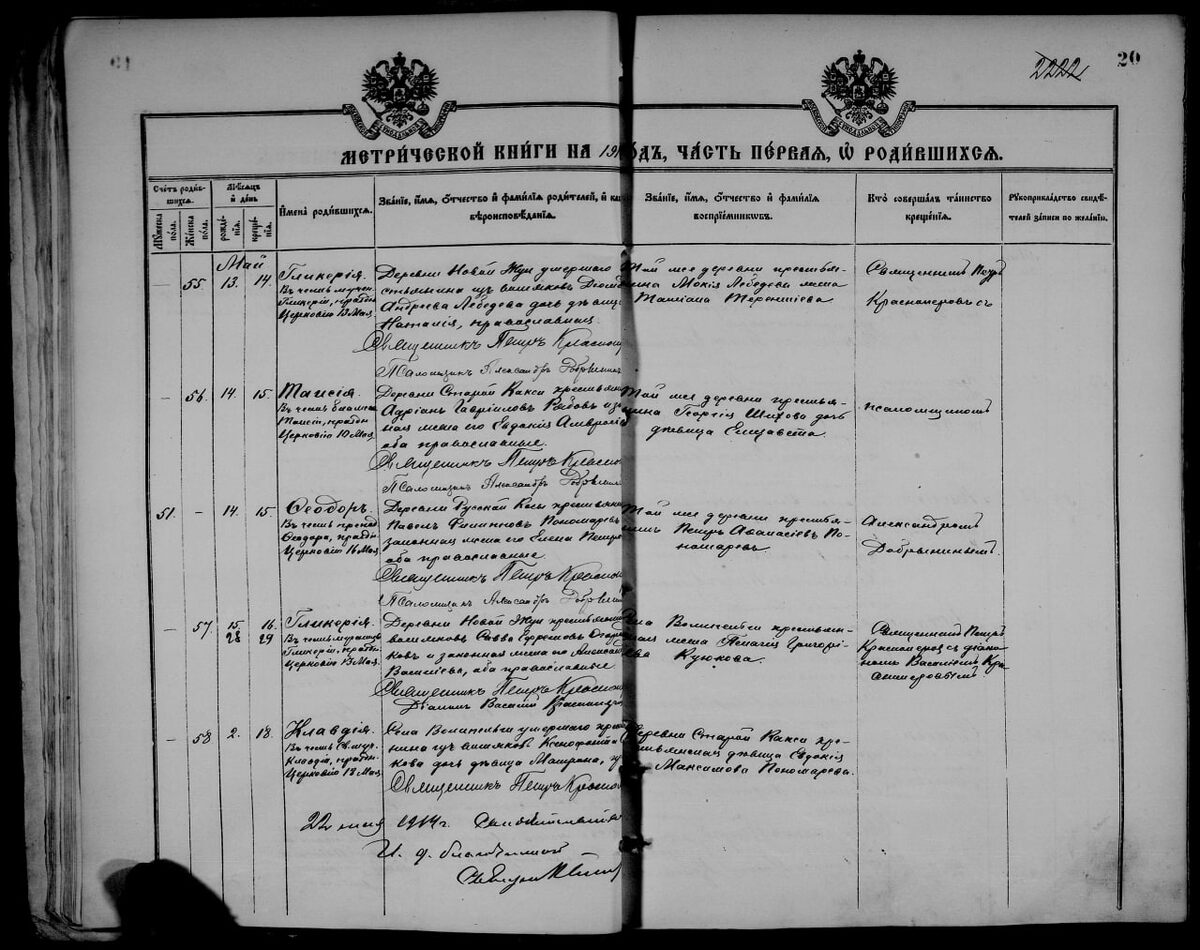 2222
20
МЕТРИ́ЧЕСКОЙ КНИ́ГИ НА 191 ОДЪ, ЧА́СТЬ ПЕ́РВАЯ, Ѡ РОДИ́ВШИХСѦ.
Сче́тъ роди́в-
шихся.
Мѣ́сяцъ
и́ де́нь
Мꙋжеска по́ла.
Же́нска по́ла.
рожде́-
нїя.
креще́-
нїя.
И́мена роди́вшихся.
Зва́нїе, и́мя, о́тчество и́ фами́лїя роди́телей, и́ ка
вѣроисповѣ́данїя.
Зва́нїе, и́мя, о́тчество и́ фами́лїя
воспрїе́мниковъ.
Кто̀ соверша́лъ та́инство
креще́нїя.
Рꙋкоприкла́дство свидѣ́-
телей за́писи по жела́нїю.
Май
— 55. 13. 14.
Гликерія.
Въ честь мучен.
Гликеріи, праздн.
Церковію 13 Мая.
Деревни Новой Жуи умершаго
Андреева Лебедева дочь дѣвица
Наталія, православная.
Священникъ Петръ Красно
Псаломщикъ Александръ Добрынин
Той же деревни крестья-
нина Мокія Лебедева жена
Татіана Терентіева
Священникъ Петръ
Красноперовъ съ
— 56. 14. 15.
Таисія.
Въ честь
Таисіи, праздн.
Церковію 10 Мая.
Деревни Старой Какси крестьян
Адріанъ Гавріиловъ Рябовъ и за
ная жена его Евдокія Амвросі
оба православные.
Священникъ Петръ Красно
Псаломщикъ Александръ Добрынин
Той же деревни крестья-
нина Георгія дочь
дѣвица Елизавета.
псаломщикомъ
51. — 14. 15.
Ѳеодоръ.
Въ честь препод.
Ѳеодора, праздн.
Церковію 16 Мая.
Деревни Русской Косы крестьянин
Павелъ Филипповъ Пономаревъ
законная жена его Елена Петро
оба православные
Священникъ Петръ Красно
Псаломщикъ Александръ Добрынин
Той же деревни крестья-
нинъ Петръ Аѳанасіевъ По-
номаревъ
Александромъ
Добрынинымъ.
— 57. 15. 16.
28 29
Гликерія.
Въ честь мучениц.
Гликеріи, праздн.
Церковію 13 Мая.
Деревни Новой Жуи крестьянин
вотяковъ Савва Ефремовъ
ковъ и законная жена его
Васильева, оба православные
Священникъ Петръ Красно
Діаконъ Василій Красноперо
Села Волипельги крестьян-
ская жена Пелагія Григорі-
ева Куюкова.
Священник Петръ
Красноперовъ съ діако-
номъ Василіемъ Кра-
сноперовымъ
— 58 2. 18.
Клавдія.
Въ честь Св. муч.
Клавдіи, праздн.
Церковію 18 Мая.
Села Волипельги умершаго крест
нина изъ вотяковъ Ксенофонта
кова дочь дѣвица Матрона, пр
Священникъ Петръ Красно
Деревни Старой Какси кре-
стьянская дѣвица Евдокія
Максимова Пономарева.
22 1914 г.
И. д. благочинный